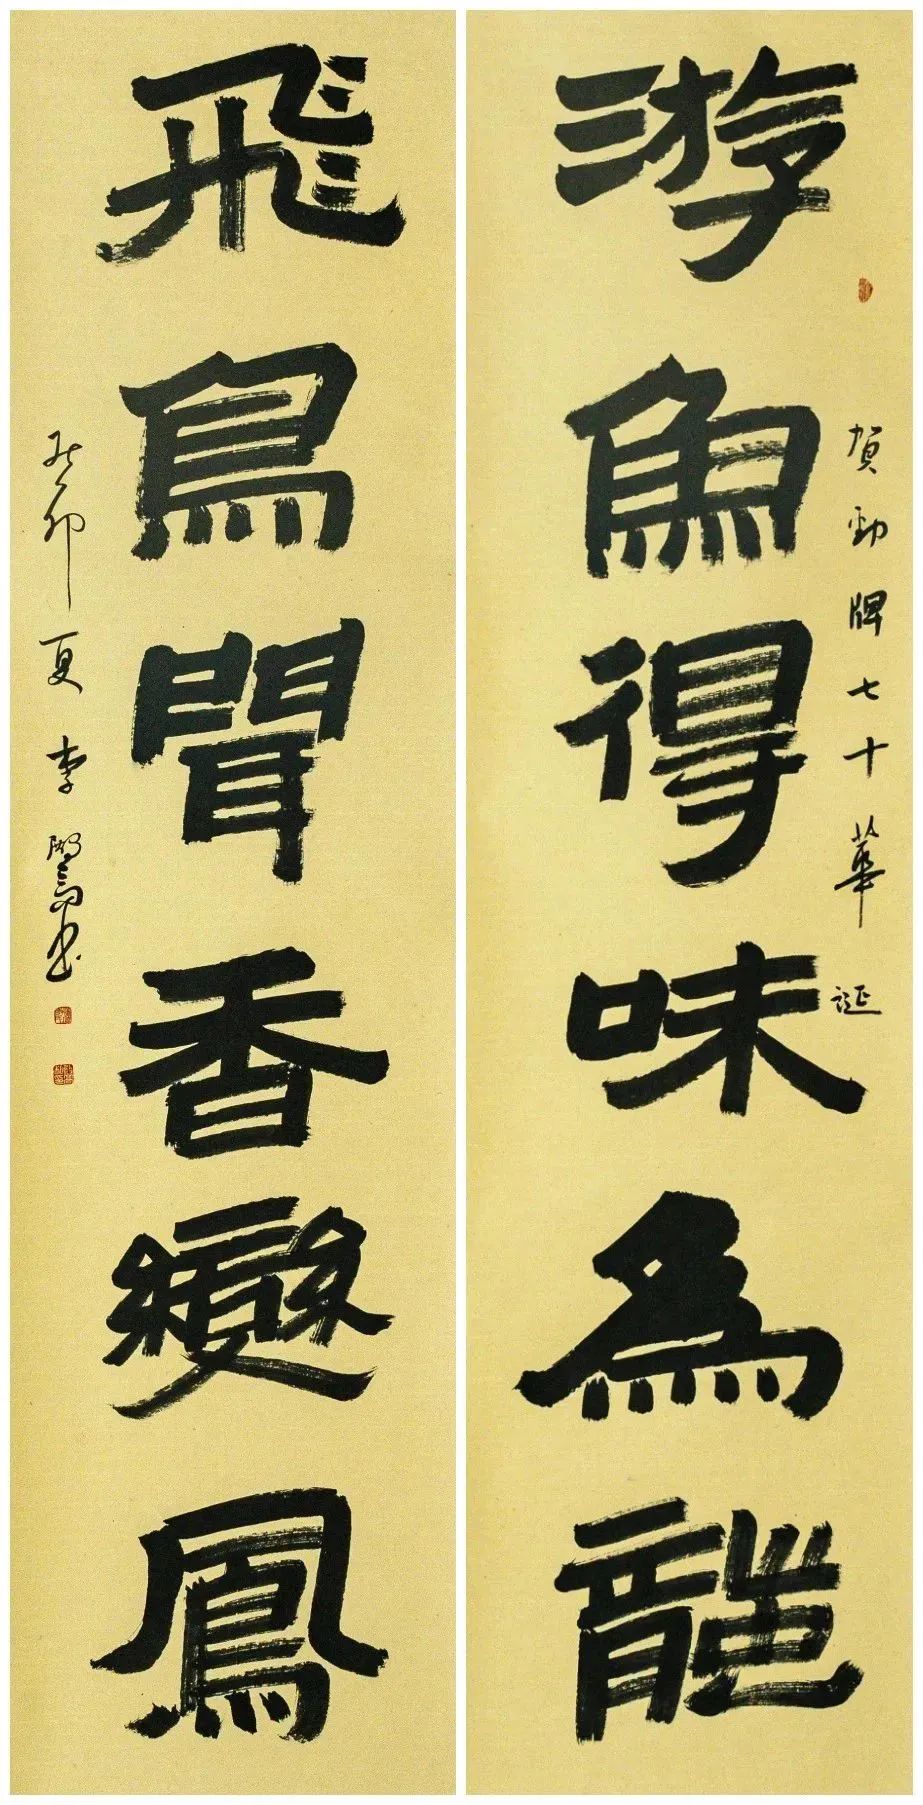 游魚得味為龍
賀勁牌七十華誕
飛鳥聞香變鳳
癸卯夏 李 書